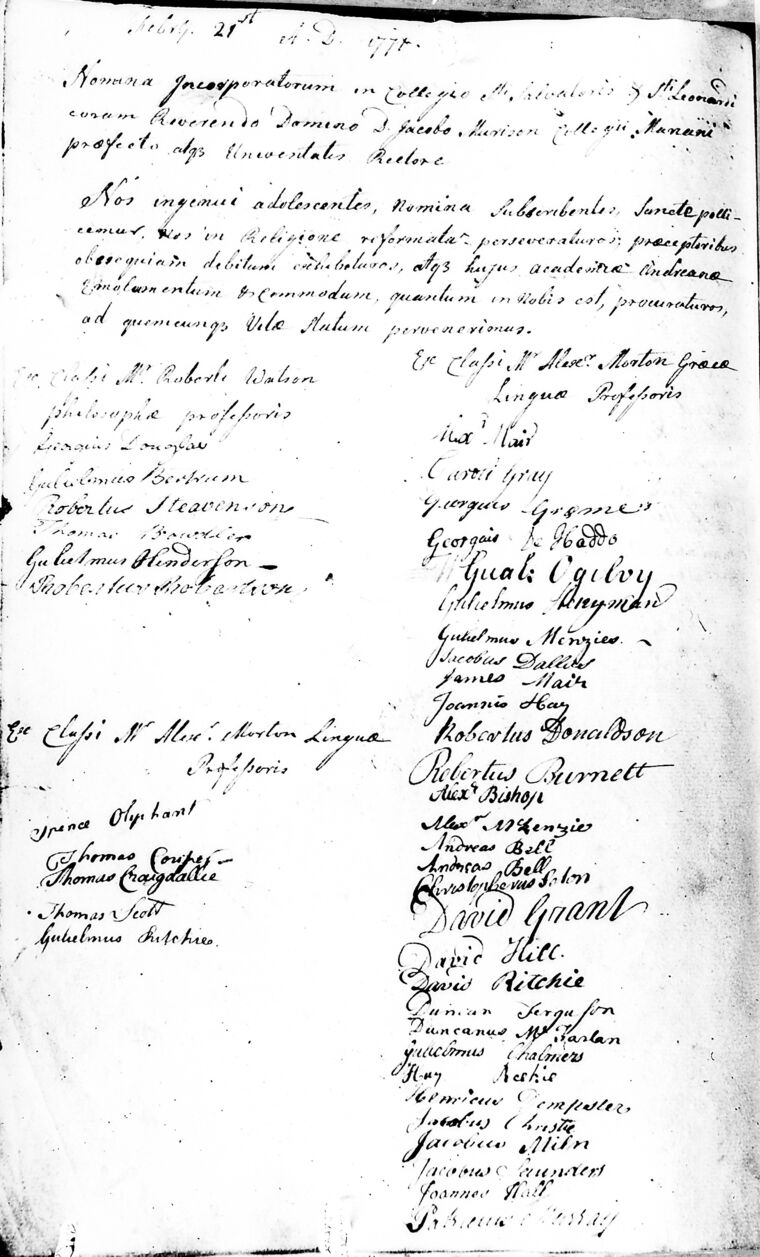 Febry. 21st A. D. 177
Nomina Incorporatorum in Collegio Sti Salvatoris & Sti Leonardi
coram Reverendo Domino D. Jacobo Murison Collegii Mariani
præfecto atq3 Universitatis Rectore
Nos ingenui adolescentes, nomina Subscribentes, Sancte polli-
cemur, nos in Religione reformata perseveraturos, præceptoribus
obsequium debitum exhibituros, atq3 hujus academiæ Andreanæ
Emolumentum & commodum, quantum in nobis est, procuraturos,
ad quemcunq3 Vitæ Statum pervenerimus.
Ex Classi Mr. Roberti Watson
philosophæ professoris
Georgius Douglas
Gulielmus Bertrum
Robertus Steavenson
Thomas Bowdler
Gulielmus Henderson
Robertus Robertson
Ex Classi Mr Alexr. Morton Linguæ
Professoris
Oliphant
Thomas Couper
Thomas Craigdallie
Thomas Scott
Gulielmus Ritchie.
Ex Classi Mr Alexr. Morton Græcæ
Linguæ Professoris
Alexd Mair
Caroli Gray
Georgius Græme
Georgius De Haddo
Gualt: Ogilvy
Gulielmus
Gulielmus Menzies.
Jacobus Dallas
James Mair
Joannis Hay
Robertus Donaldson
Robertus Burnett
Alexr Bishop
Alexr McKenzie
Andreas Bell
Andreas Bell
Christopherus Seton
David Grant
David Hill.
David Ritchie
Duncan Ferguson
Duncanus Mc Farlan
Gulielmus Chalmers
Hay
Henricus Dempster
Jacobus Christie
Jacobus Miln
Jacobus Saunders
Joannes Hall
Patricius Murray